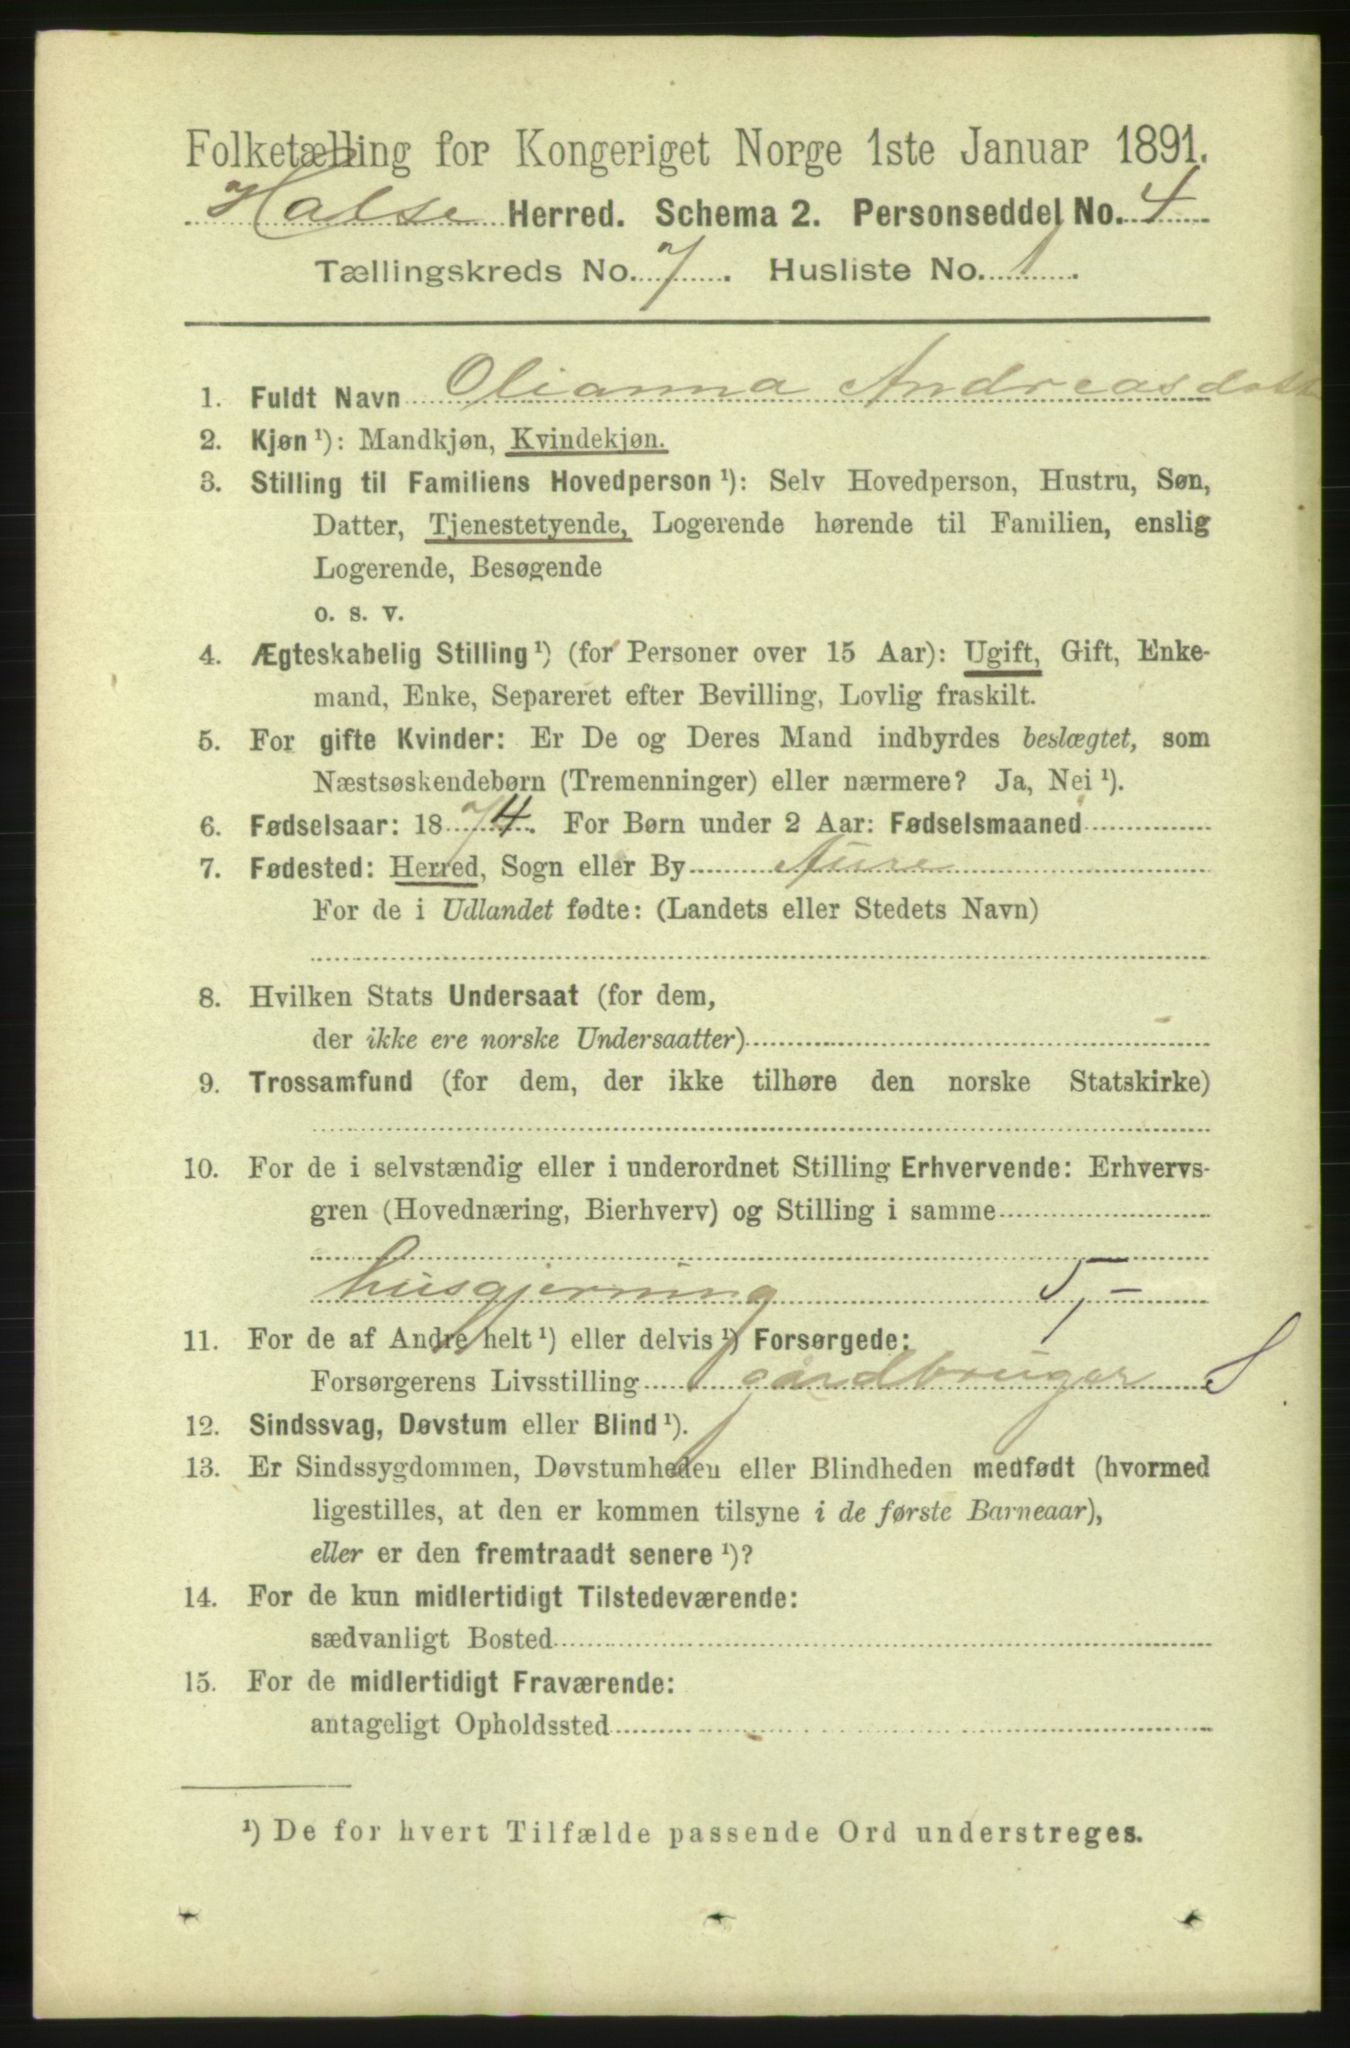 Folketælling for Kongeriget Norge 1ste Januar 1891.
Halse Herred. Schema 2. Personseddel No. 4
Tællingskreds No. 7. Husliste No. 1.
1. Fuldt Navn Olianna Andreasdott
2. Kjøn ¹): Mandkjøn, Kvindekjøn.
3. Stilling til Familiens Hovedperson ¹): Selv Hovedperson, Hustru, Søn,
Datter, Tjenestetyende, Logerende hørende til Familien, enslig
Logerende, Besøgende
o. s. v.
4. Ægteskabelig Stilling ¹) (for Personer over 15 Aar): Ugift, Gift, Enke-
mand, Enke, Separeret efter Bevilling, Lovlig fraskilt.
5. For gifte Kvinder: Er De og Deres Mand indbyrdes beslægtet, som
Næstsøskendebørn (Tremenninger) eller nærmere? Ja, Nei ¹).
6. Fødselsaar: 1874. For Børn under 2 Aar: Fødselsmaaned
7. Fødested: Herred, Sogn eller By Aure
For de i Udlandet fødte: (Landets eller Stedets Navn)
8. Hvilken Stats Undersaat (for dem,
der ikke ere norske Undersaatter)
9. Trossamfund (for dem, der ikke tilhøre den norske Statskirke)
10. For de i selvstændig eller i underordnet Stilling Erhvervende: Erhvervs-
gren (Hovednæring, Bierhverv) og Stilling i samme
husgjerning 5,-
11. For de af Andre helt ¹) eller delvis ¹) Forsørgede:
Forsørgerens Livsstilling gårdbruger S
12. Sindssvag, Døvstum eller Blind ¹).
13. Er Sindssygdommen, Døvstumheden eller Blindheden medfødt (hvormed
ligestilles, at den er kommen tilsyne i de første Barneaar),
eller er den fremtraadt senere ¹)?
14. For de kun midlertidigt Tilstedeværende:
sædvanligt Bosted
15. For de midlertidigt Fraværende:
antageligt Opholdssted
¹) De for hvert Tilfælde passende Ord understreges.